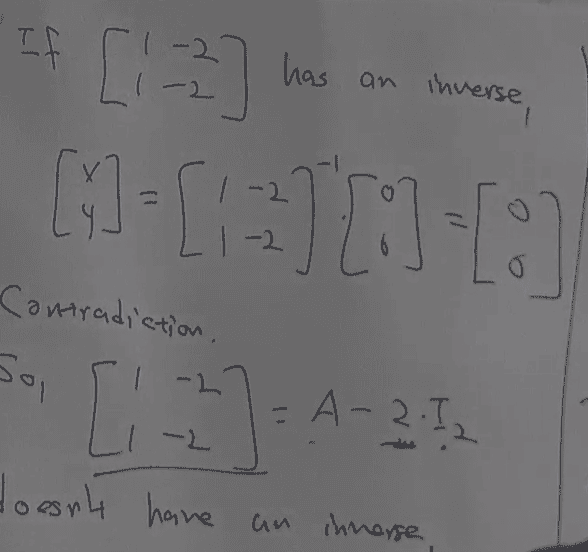 If [1 -2; 1 -2] has an inverse,
[x; y] = [1 -2; 1 -2]^-1 · [0; 0] = [0; 0]
Contradiction.
So, [1 -2; 1 -2] = A - 2·I_2
doesn't have an inverse